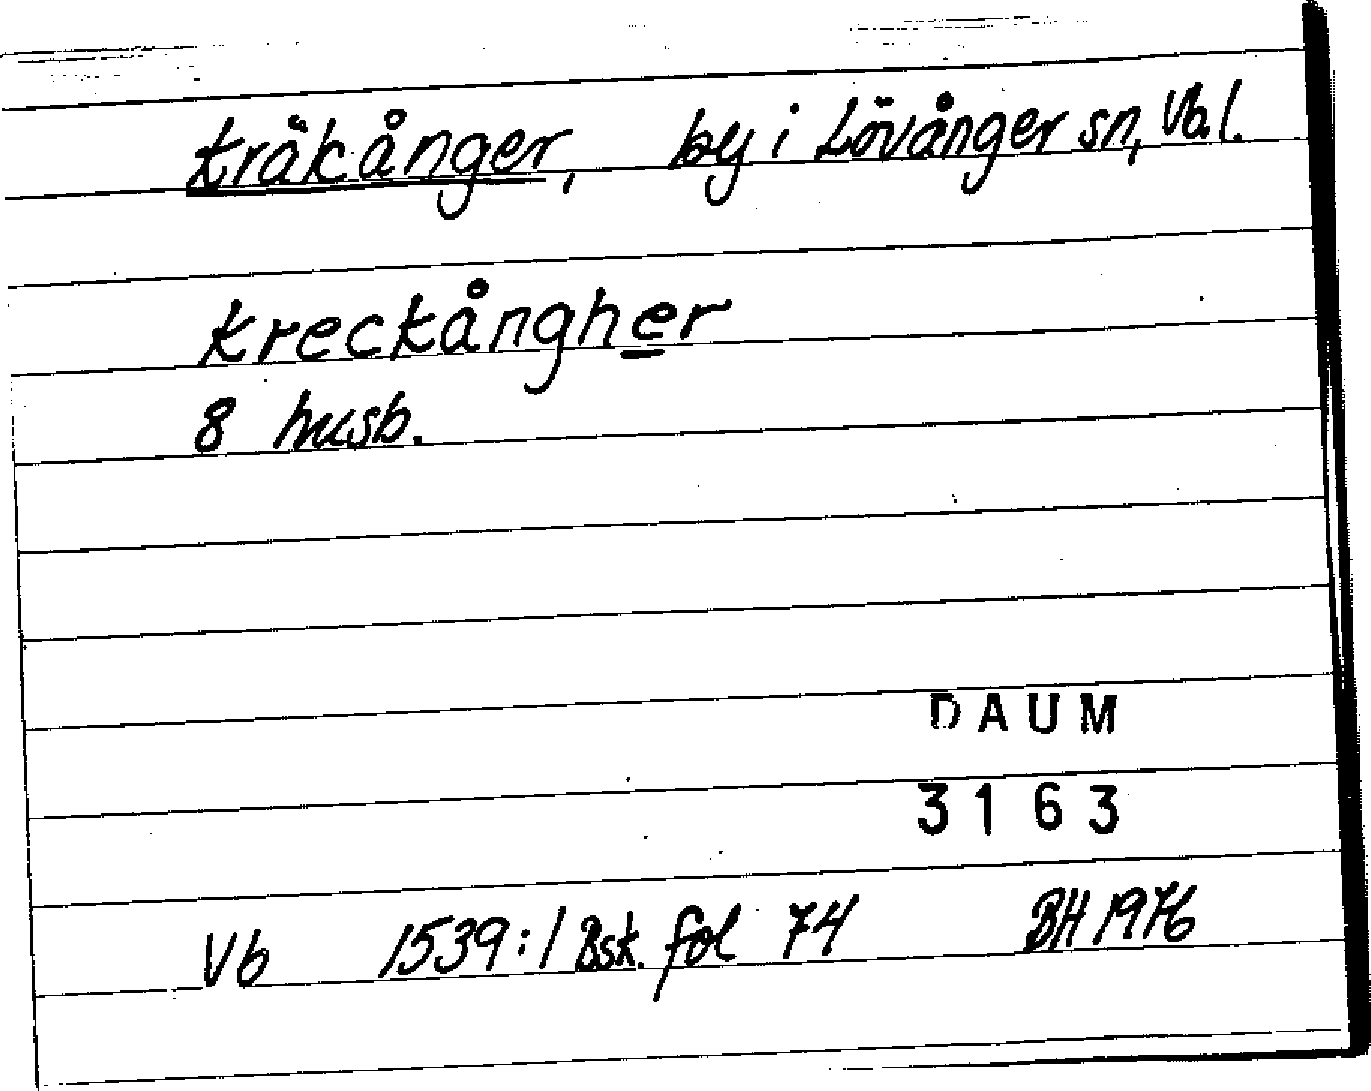 Kräkånger, by i Lövånger sn, Vb. l.
Kreckångher
8 husb.
DAUM
3163
Vb 1539:1 Bsk. fol 74 BH 1976